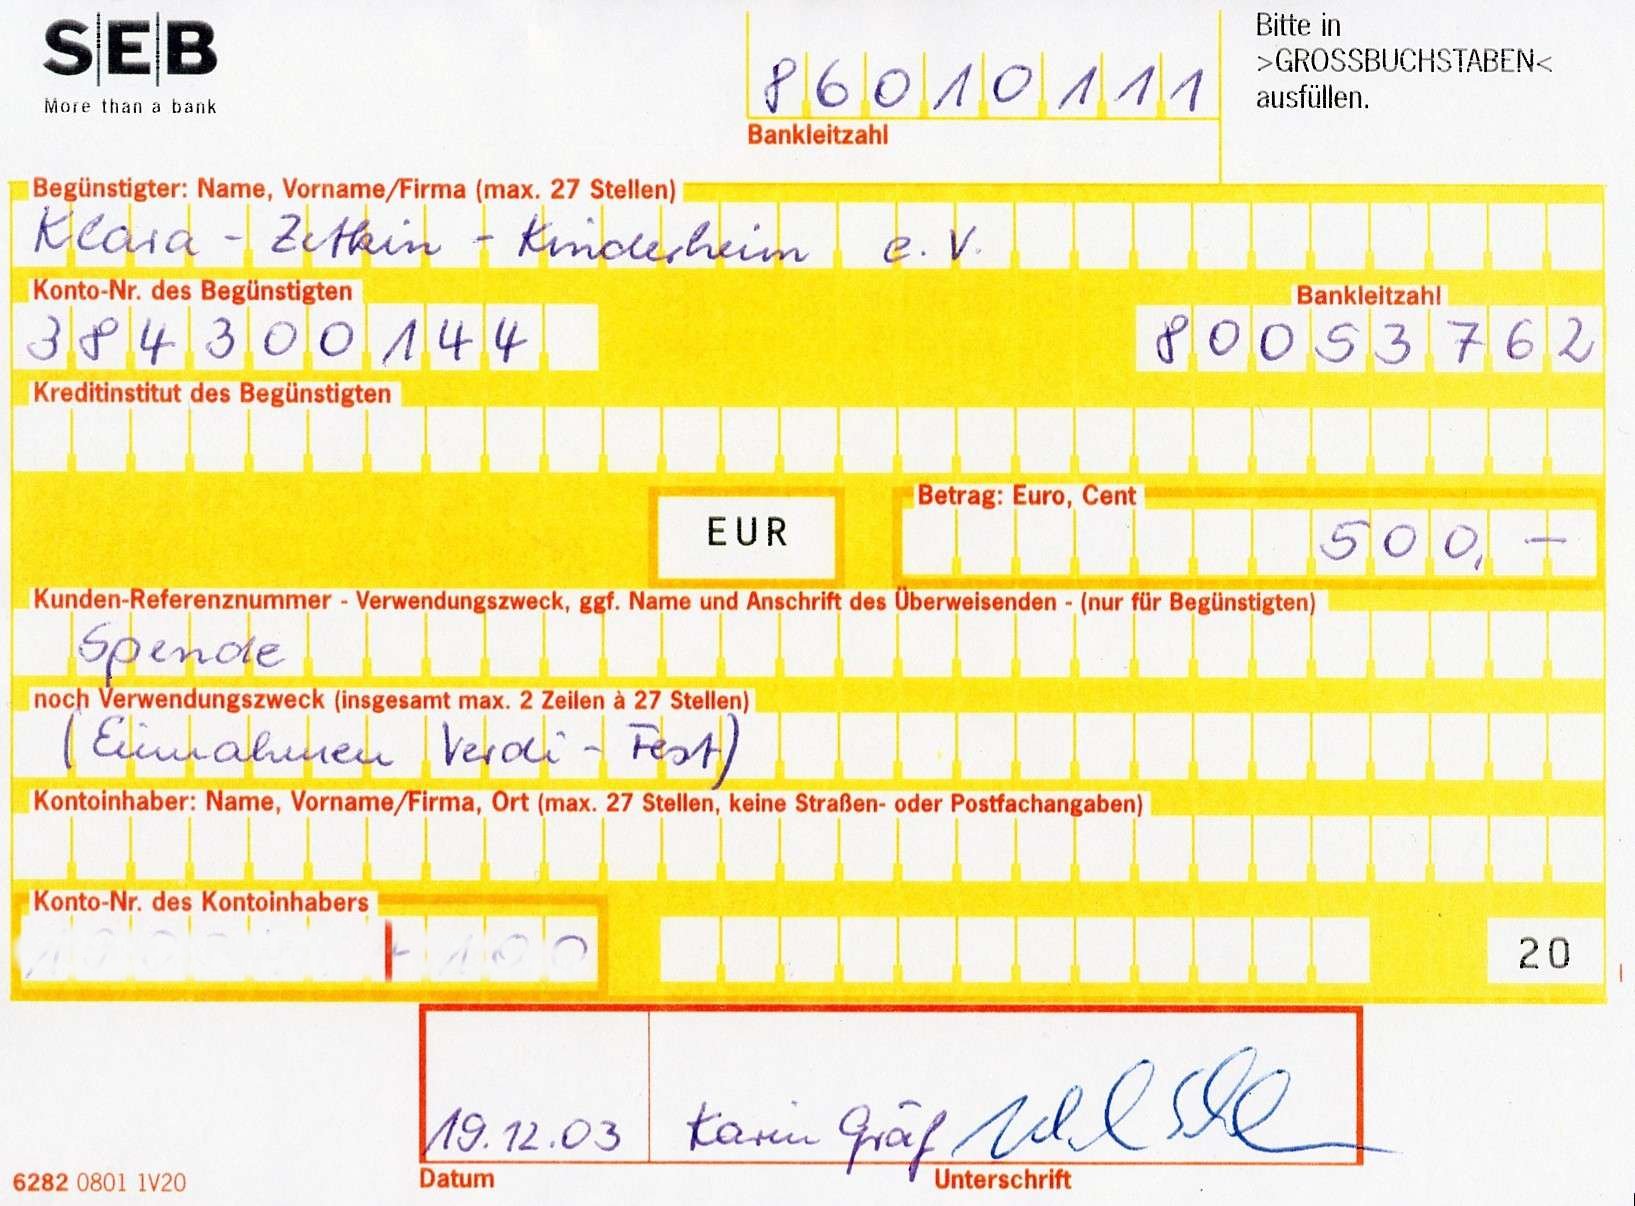 SEB
More than a bank
86010111
Bankleitzahl
Bitte in
>GROSSBUCHSTABEN<
ausfüllen.
Begünstigter: Name, Vorname/Firma (max. 27 Stellen)
Klara - Zetkin - Kinderheim e. V.
Konto-Nr. des Begünstigten
Bankleitzahl
384300144
80053762
Kreditinstitut des Begünstigten
EUR
Betrag: Euro, Cent
500,-
Kunden-Referenznummer - Verwendungszweck, ggf. Name und Anschrift des Überweisenden - (nur für Begünstigten)
Spende
noch Verwendungszweck (insgesamt max. 2 Zeilen à 27 Stellen)
(Einnahmen Verdi - Fest)
Kontoinhaber: Name, Vorname/Firma, Ort (max. 27 Stellen, keine Straßen- oder Postfachangaben)
Konto-Nr. des Kontoinhabers
20
19.12.03
Karin Gräf
Datum
Unterschrift
6282 0801 1V20